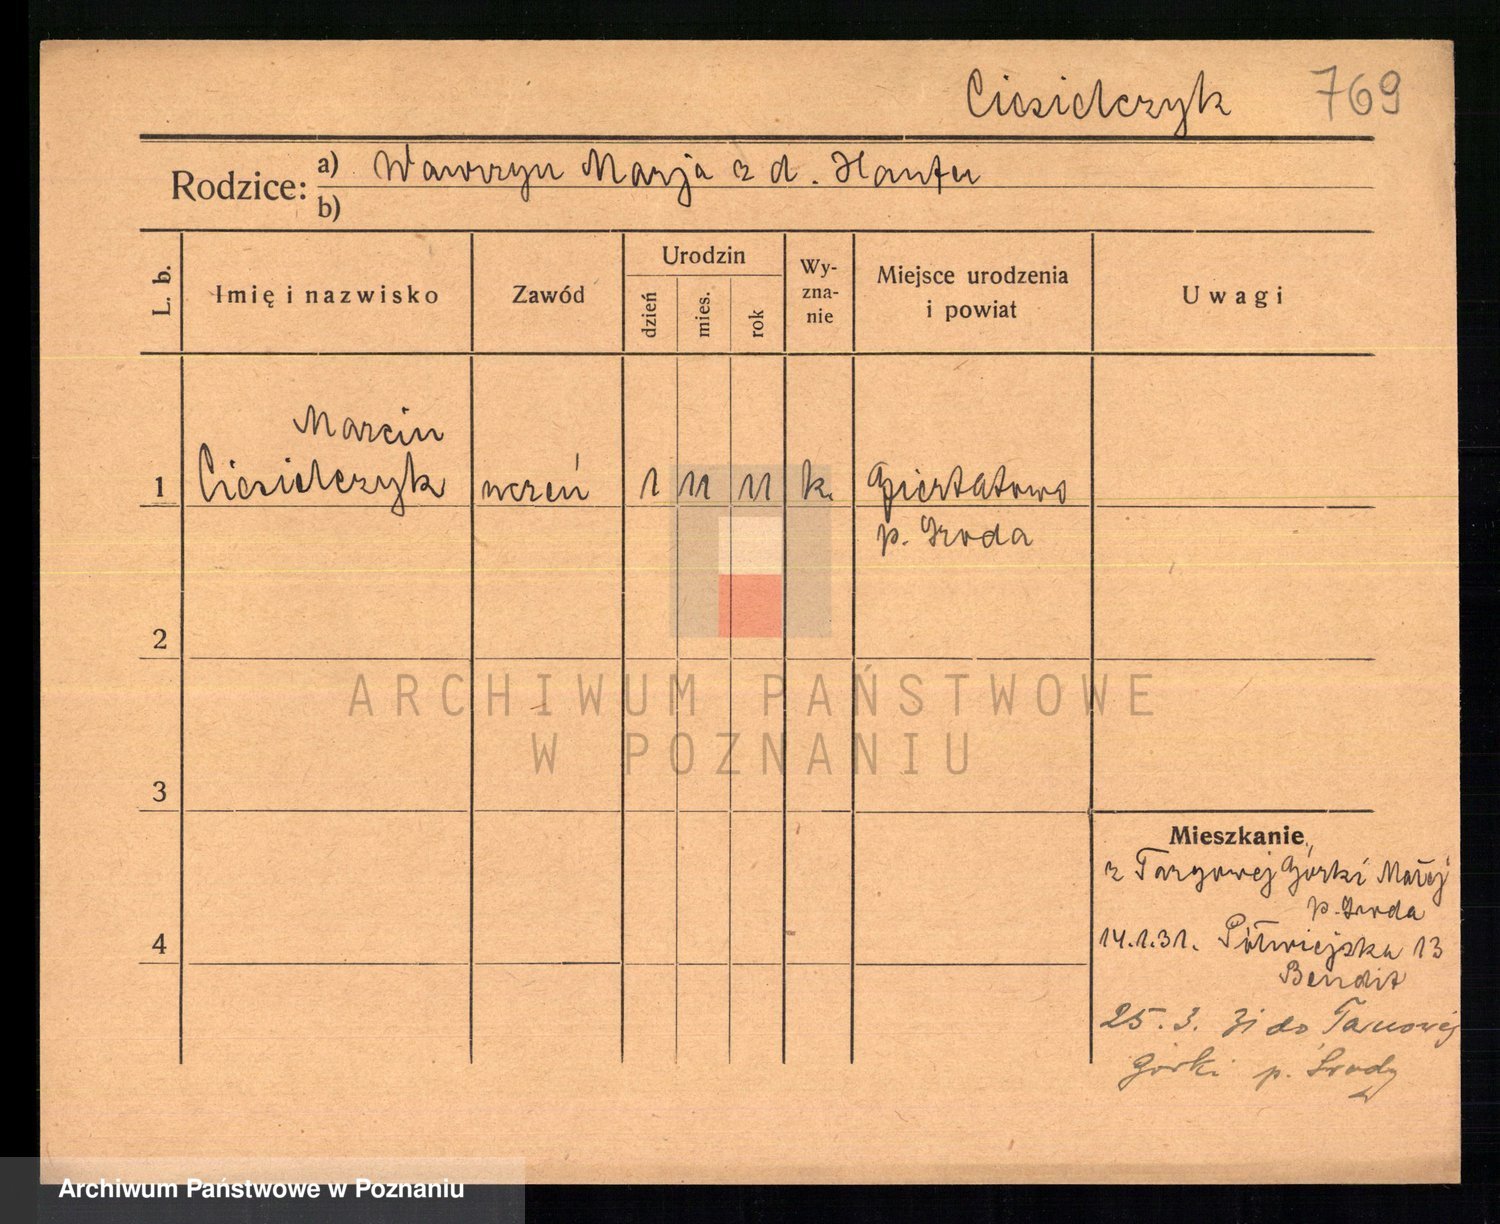 Ciesielczyk 769
Rodzice: a) Wawrzyn Marja z d. Hanfu
b)
L. b. Imię i nazwisko Zawód Urodzin dzień mies. rok Wy-zna-nie Miejsce urodzenia i powiat Uwagi
Marcin
1 Ciesielczyk uczeń 1 11 11 k. Gierłatowo
p. Środa
2
ARCHIWUM PAŃSTWOWE
W POZNANIU
3
Mieszkanie
z Targowej Górki Małej
p. Środa
4 14.1.31. Półwiejska 13
Bendit
25.3. 31 do Tarnowej
Górki p. Środy
Archiwum Państwowe w Poznaniu